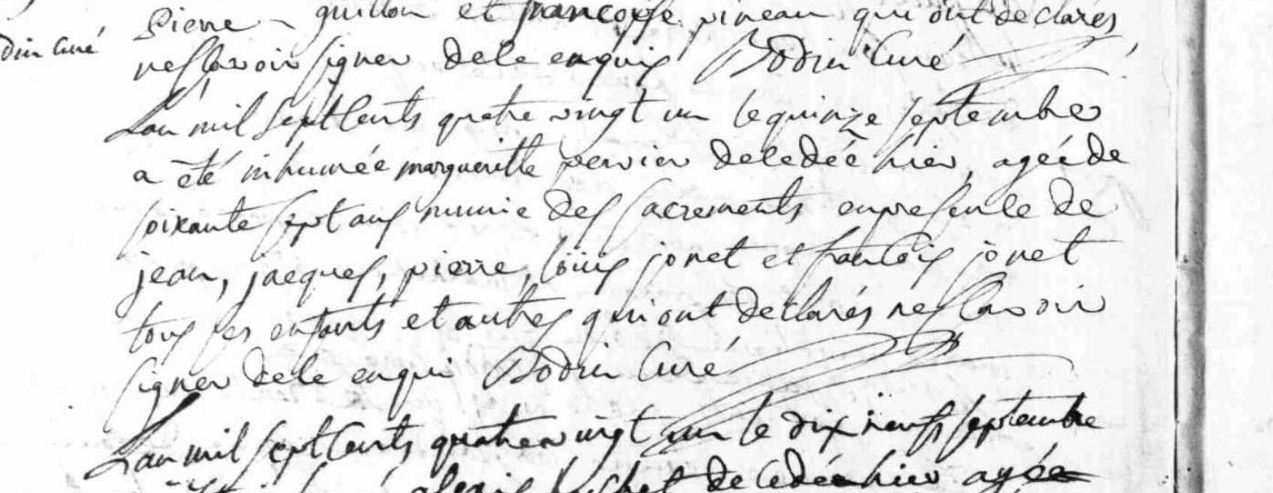 Pierre guillon et francoise pineau qui ont declarés
din Curé
ne sçavoir signer de ce enquis Bodin Curé
Lan mil sept Cents quatre vingt un le quinze septembre
a été inhumée margueritte pervier decedéé hier, agéé de
soixante sept ans munie des sacrements en presence de
jean, jacques, pierre, loüis jonet et francois jonet
tous ses enfants et autres qui ont declarés ne sçavoir
signer de ce enqui Bodin Curé
Lan mil sept Cents quatre vingt un le dix neuf septembre
decedéé hier agéé